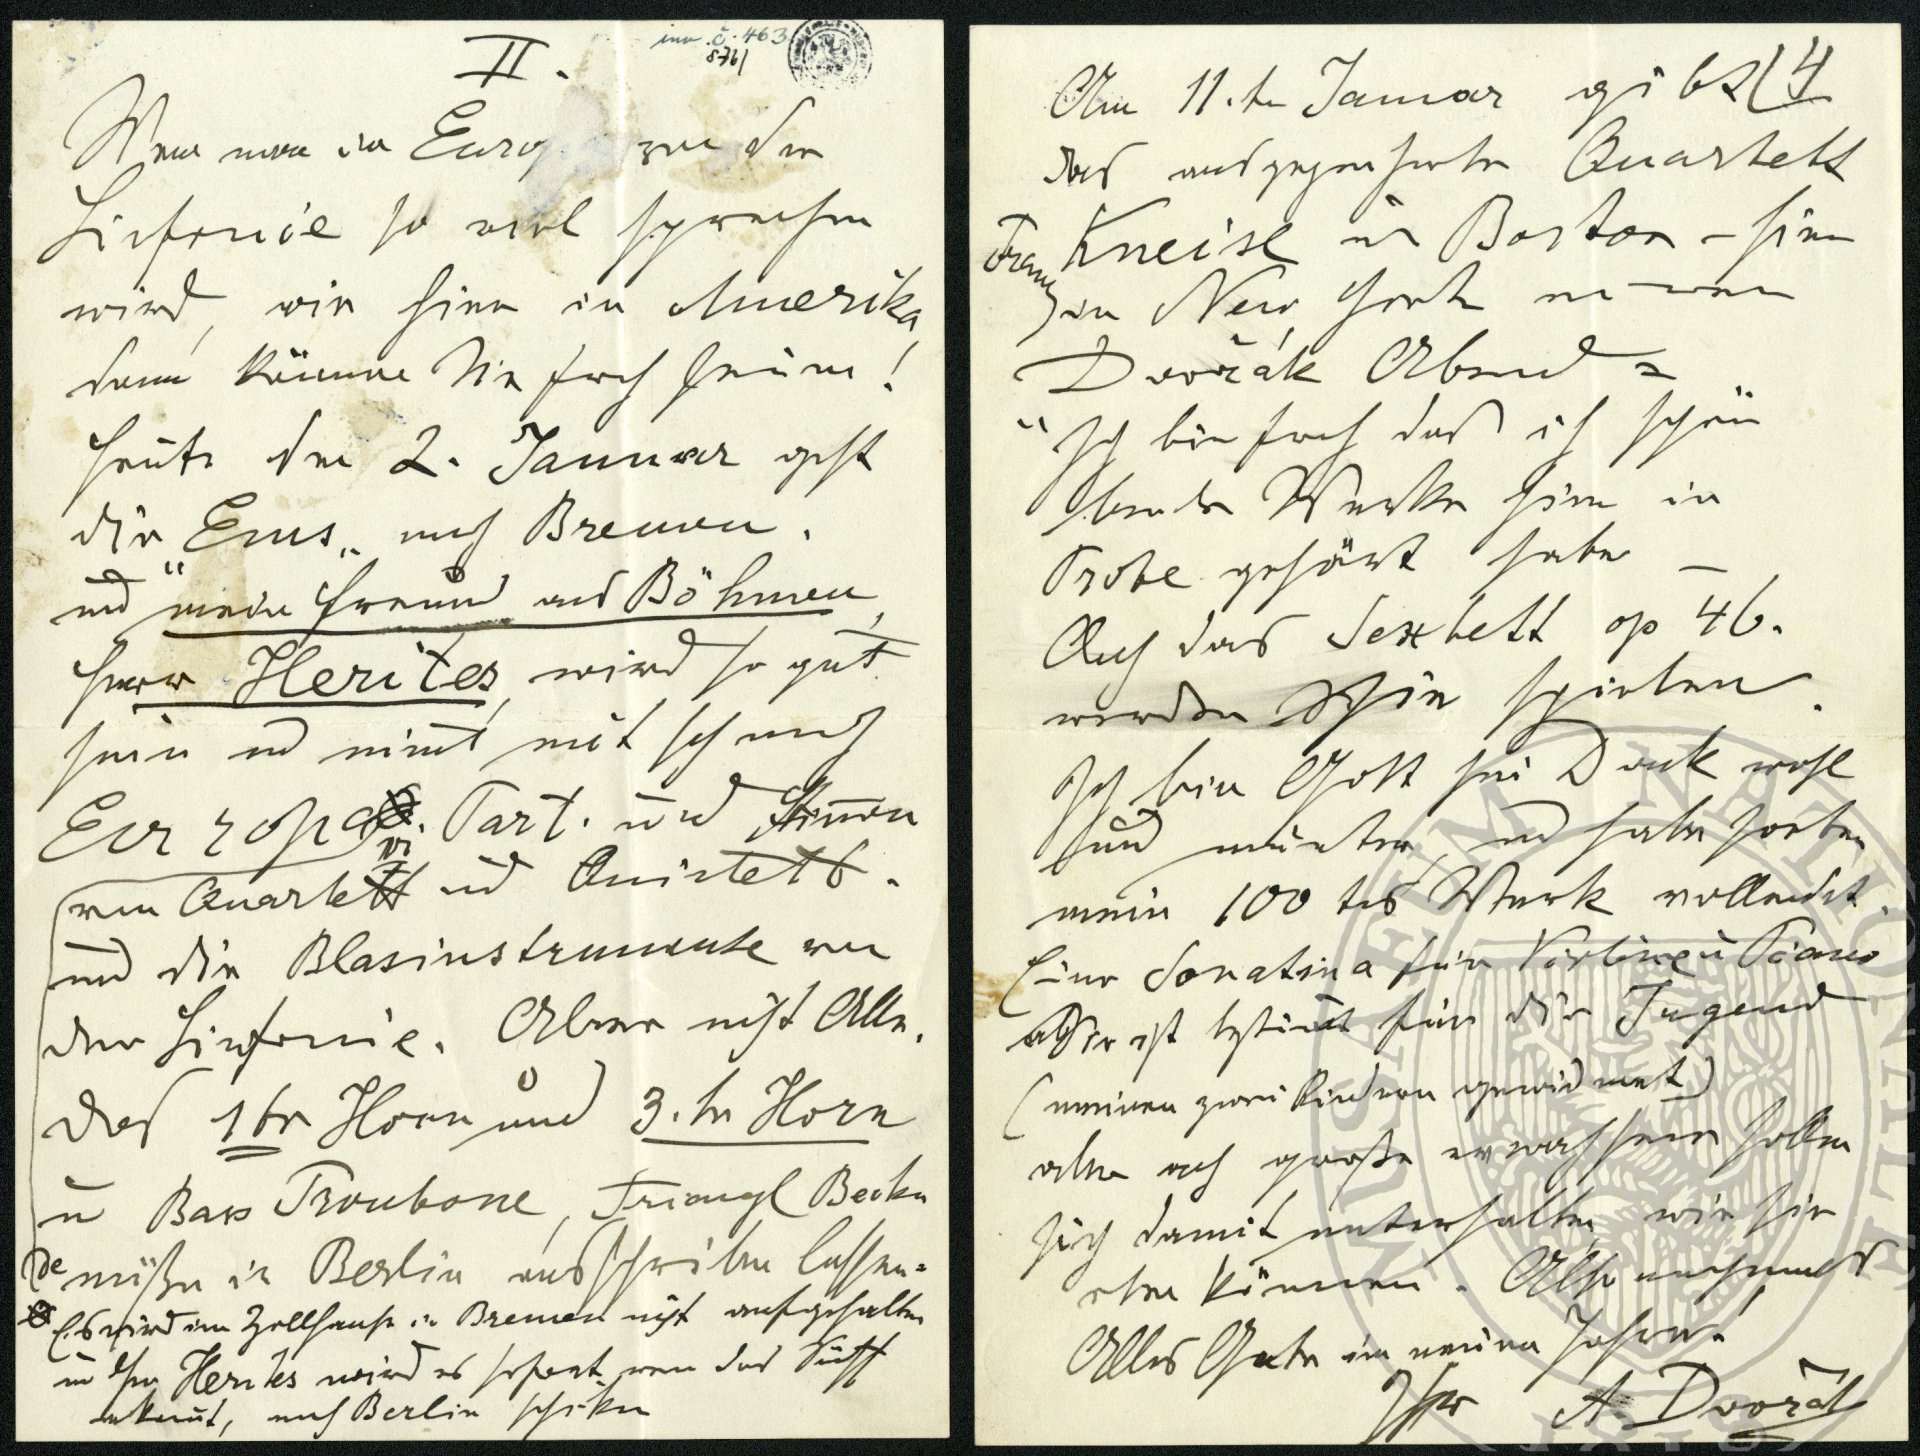 II.
inv. č. 463
Wenn man in Europ von der
Sinfonie so viel sprechen
wird, wie hier in Amerika,
dann können Sie froh sein!
Heute den 2. Januar geht
die „Ems„ nach Bremen.
und mein Freund aus Böhmen,
Herr Herites, wird so gut
sein und nimt mit sich nach
Europa. Part. und Stimmen
von Quartett und Quintett.
und die Blasinstrumente von
der Sinfonie. Aber nicht Alle.
Das 1te Horn und 3.te Horn
u Bass Trombone, Triangl Becken
müßen in Berlin ausschreiben lassen.
Es wird im Zollhause in Bremen nicht aufgehalten
u Herr Herites wird es sofort wen das Schiff
ankommt, nach Berlin schiken
4
Am 11.te Januar gibt
das ausgezeichnete Quartett
Franz Kneisl in Boston – hier
in New York einen
Dvořák Abend =
Ich bin froh daß ich schon
beide Werke hier in
Probe gehört habe –
Auch das Sextett op 46.
werden Sie spielen.
Ich bin Gott sei Dank wohl
und munter, und habe soeben
mein 100 tes Werk vollendet.
Eine Sonatina für Violine u Piano
Sie ist bestimt für die Jugend
(meinen zwei Kindern gewidmet)
aber auch große erwachsene sollen
sich damit unterhalten, wie sie
eben können. Also nochmals
Alles Gute im neuen Jahre!
Ihr A. Dvořák
MUSAEUM NATIONALE